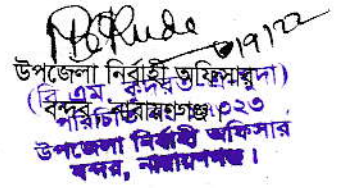 উপজেলা নির্বাহী অফিসার
(বি এম কুদরত এ খুদা)
বন্দর, নারায়ণগঞ্জ।
পরিচিতি
উপজেলা নির্বাহী অফিসার
বন্দর, নারায়ণগঞ্জ।